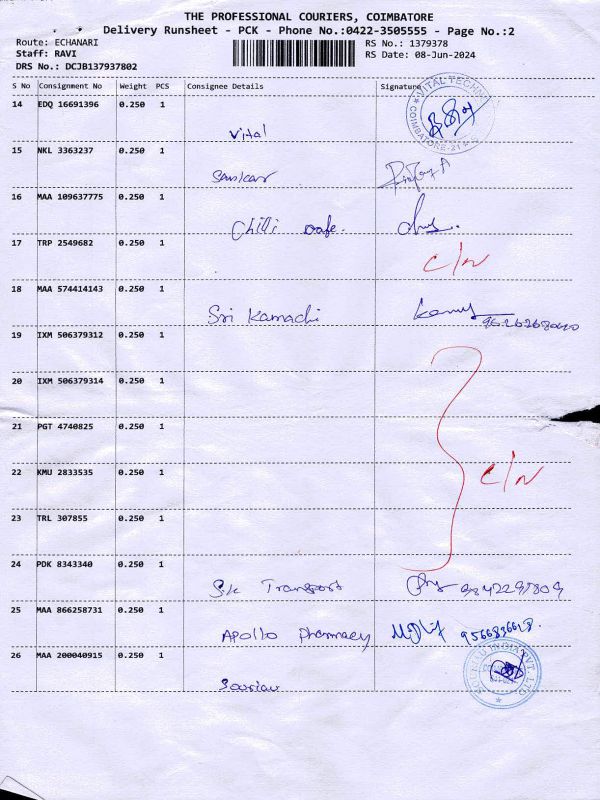 THE PROFESSIONAL COURIERS, COIMBATORE
Delivery Runsheet - PCK - Phone No.:0422-3505555 - Page No.:2
Route: ECHANARI RS No.: 1379378
Staff: RAVI RS Date: 08-Jun-2024
DRS No.: DCJB137937802
S No Consignment No Weight PCS Consignee Details Signature
14 EDQ 16691396 0.250 1
VITAL TECHN
COIMBATORE-21
Vital
15 NKL 3363237 0.250 1
Sankar
16 MAA 109637775 0.250 1
Chilli Cafe.
17 TRP 2549682 0.250 1
C/N
18 MAA 574414143 0.250 1
Sri Kamachi
19 IXM 506379312 0.250 1
20 IXM 506379314 0.250 1
21 PGT 4740825 0.250 1
22 KMU 2833535 0.250 1
C/N
23 TRL 307855 0.250 1
24 PDK 8343340 0.250 1
S.k Transport
25 MAA 866258731 0.250 1
Apollo Pharmacy
26 MAA 200040915 0.250 1
INDIA PVT. LTD